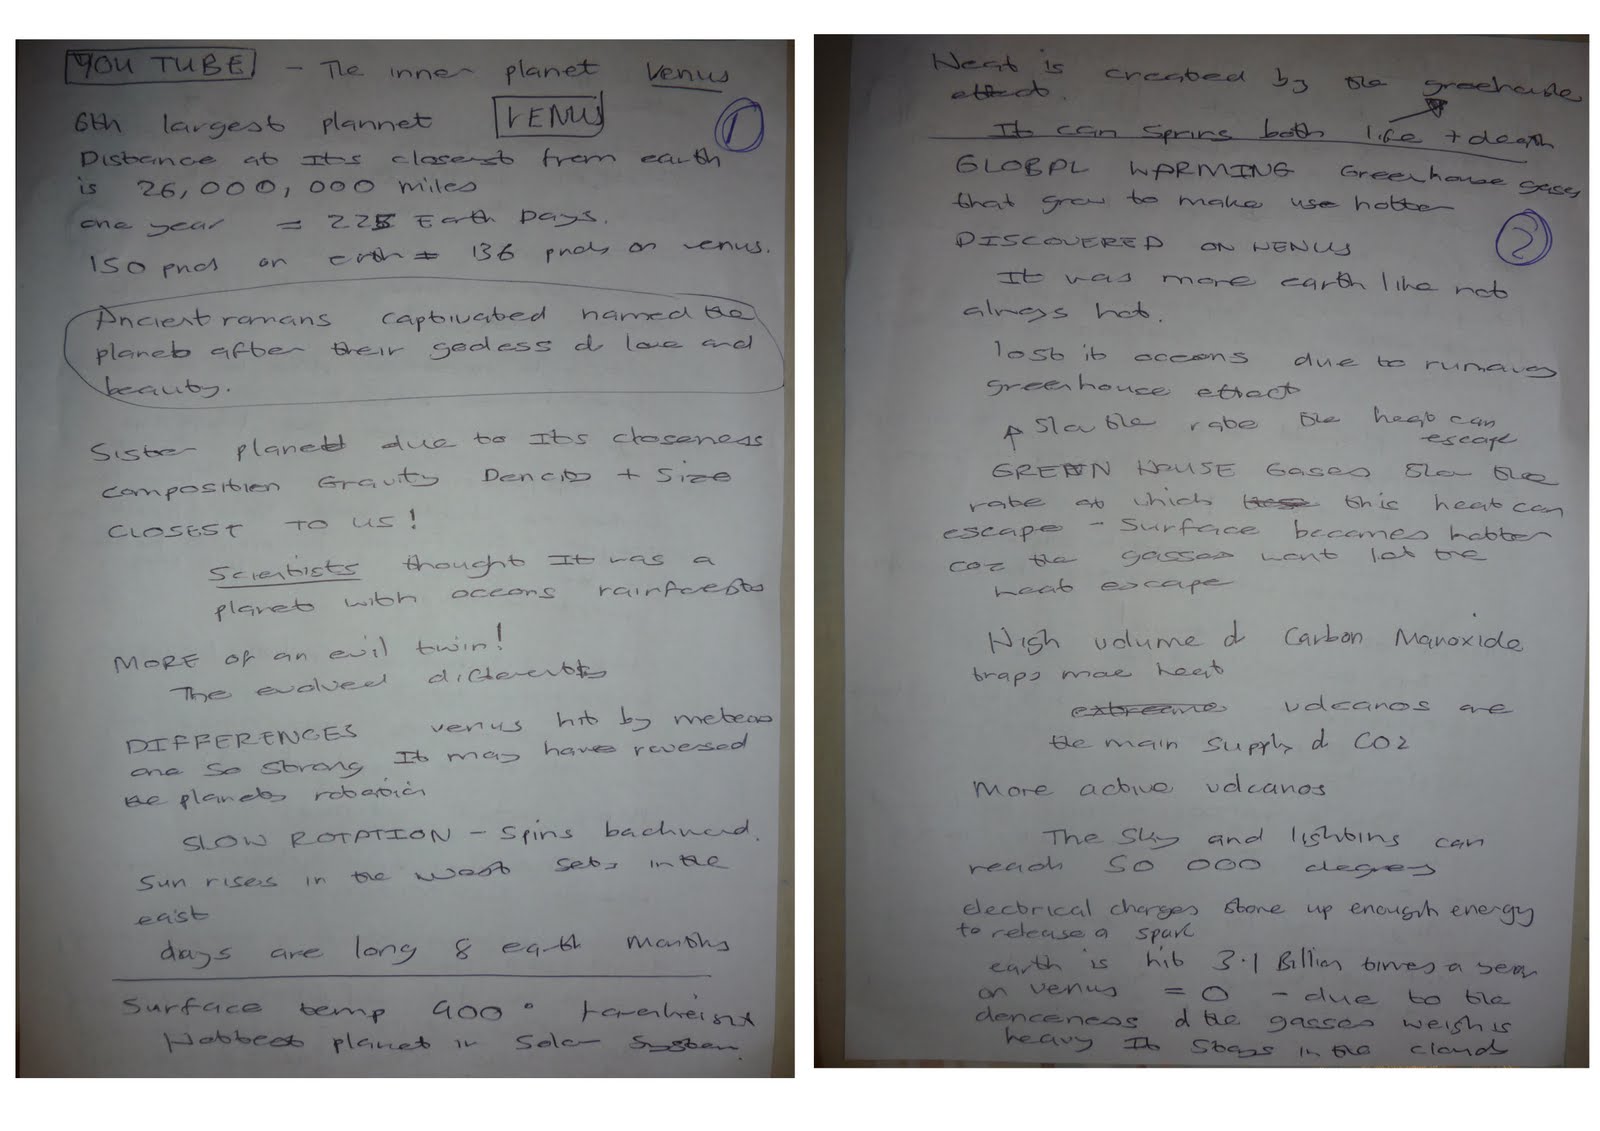 YOU TUBE - The inner planet Venus
6th largest plannet VENUS
1
Distance at Its closest from earth
is 26,000,000 miles
one year = 225 Earth Days.
150 pnds on erth = 136 pnds on venus.
Ancient romans captivated named the
planet after their godess of love and
beauty.
Sister planet due to Its closeness
composition Gravity Dencity + Size
CLOSEST TO US!
Scientists thought It was a
planet with occons rainforests
MORE of an evil twin!
The evolved differently
DIFFERENCES venus hit by meteors
one so strong It may have reversed
the planets rotation
SLOW ROTATION - Spins backward.
Sun rises in the west sets in the
east
days are long 8 earth months
Surface temp 900° farenheight
Hottest planet in Solar System.
Heat is created by the greenhouse
effect.
It can spring both life + death
GLOBAL WARMING Greenhouse gases
that grow to make use hotter
DISCOVERED ON VENUS
2
It was more earth like not
always hot.
lost it occeons due to runaway
greenhouse effect
↑ Slow the rate the heat can
escape
GREEN HOUSE Gases Slow the
rate at which this heat can
escape - Surface becomes hotter
CO2 the gasses wont let the
heat escape
High volume of Carbon Manoxide
traps more heat
extreame volcanos are
the main supply of CO2
More active volcanos
The Sky and lighting can
reach 50 000 degrees
electrical charges store up enough energy
to release a spark
earth is hit 3.1 Billion times a year
on venus = 0 - due to the
denceness of the gasses weigh is
heavy It stays in the clouds